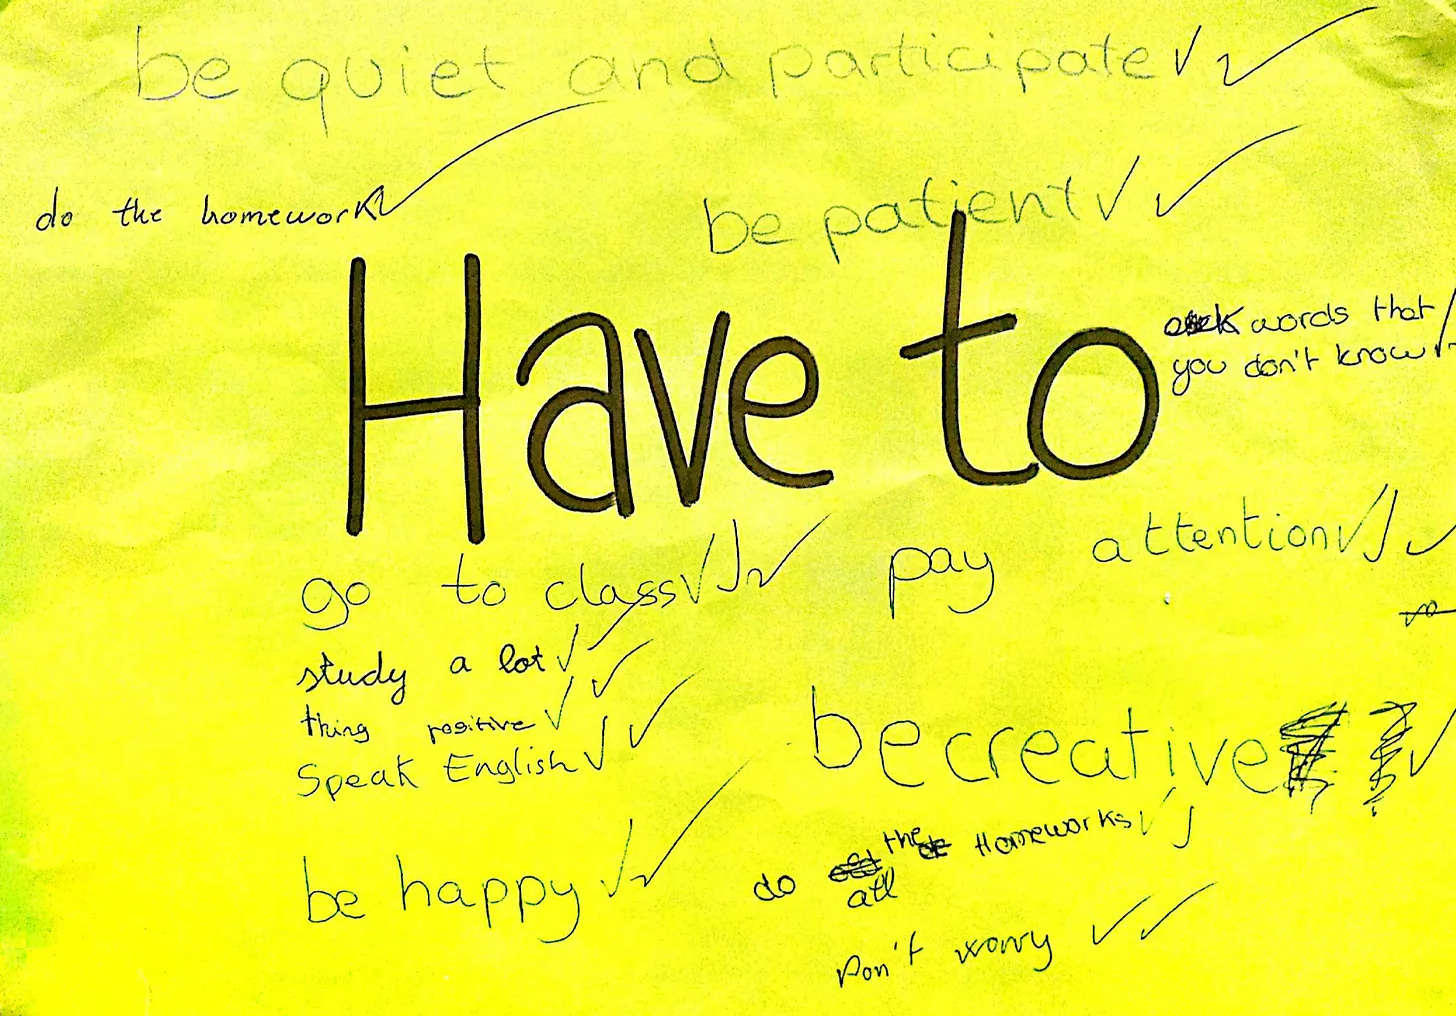 be quiet and participate
do the homework
be patient
Have to
ask words that
you don't know
go to class
pay attention
study a lot
thing positive
Speak English
be creative
do all the Homeworks
be happy
Don't worry